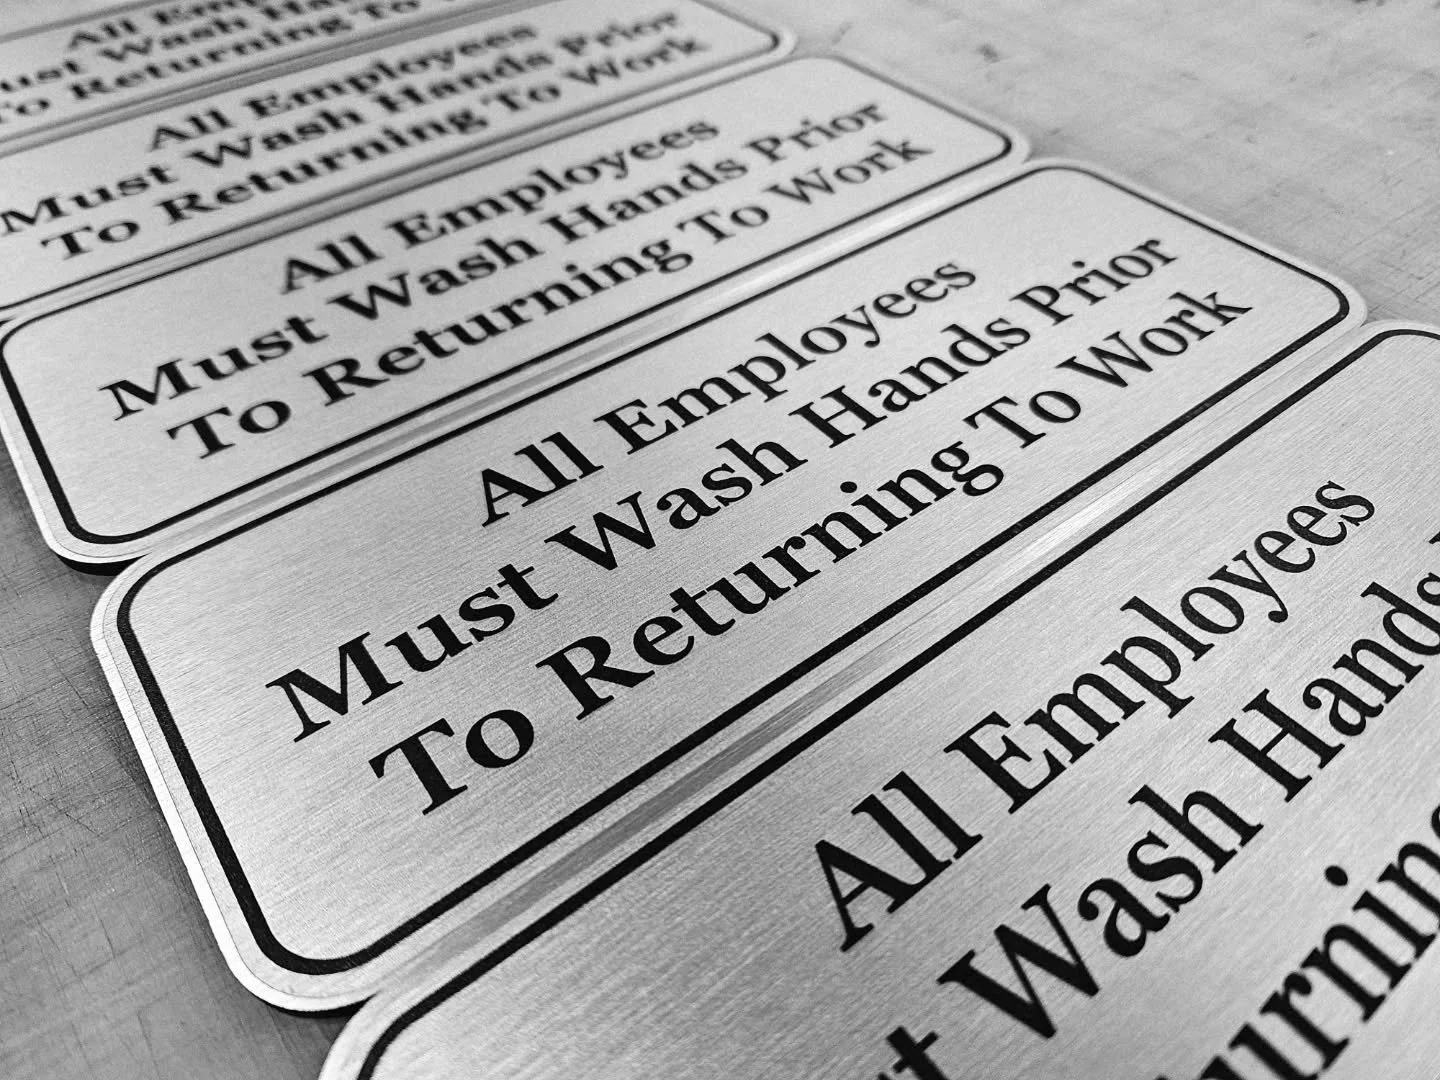 All Emp
ust Wash Ha
To Returning To
All Employees
Must Wash Hands Prior
To Returning To Work
All Employees
Must Wash Hands Prior
To Returning To Work
All Employees
Must Wash Hands Prior
To Returning To Work
All Employees
t Wash Hands
urning